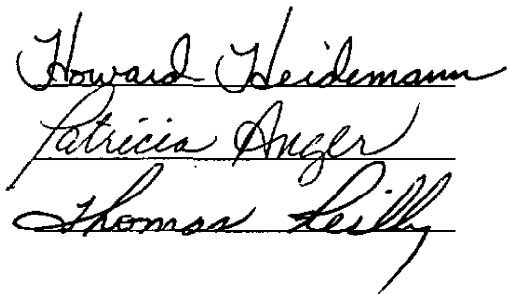 Howard Heidemann
Patricia Anger
Thomas Reilly